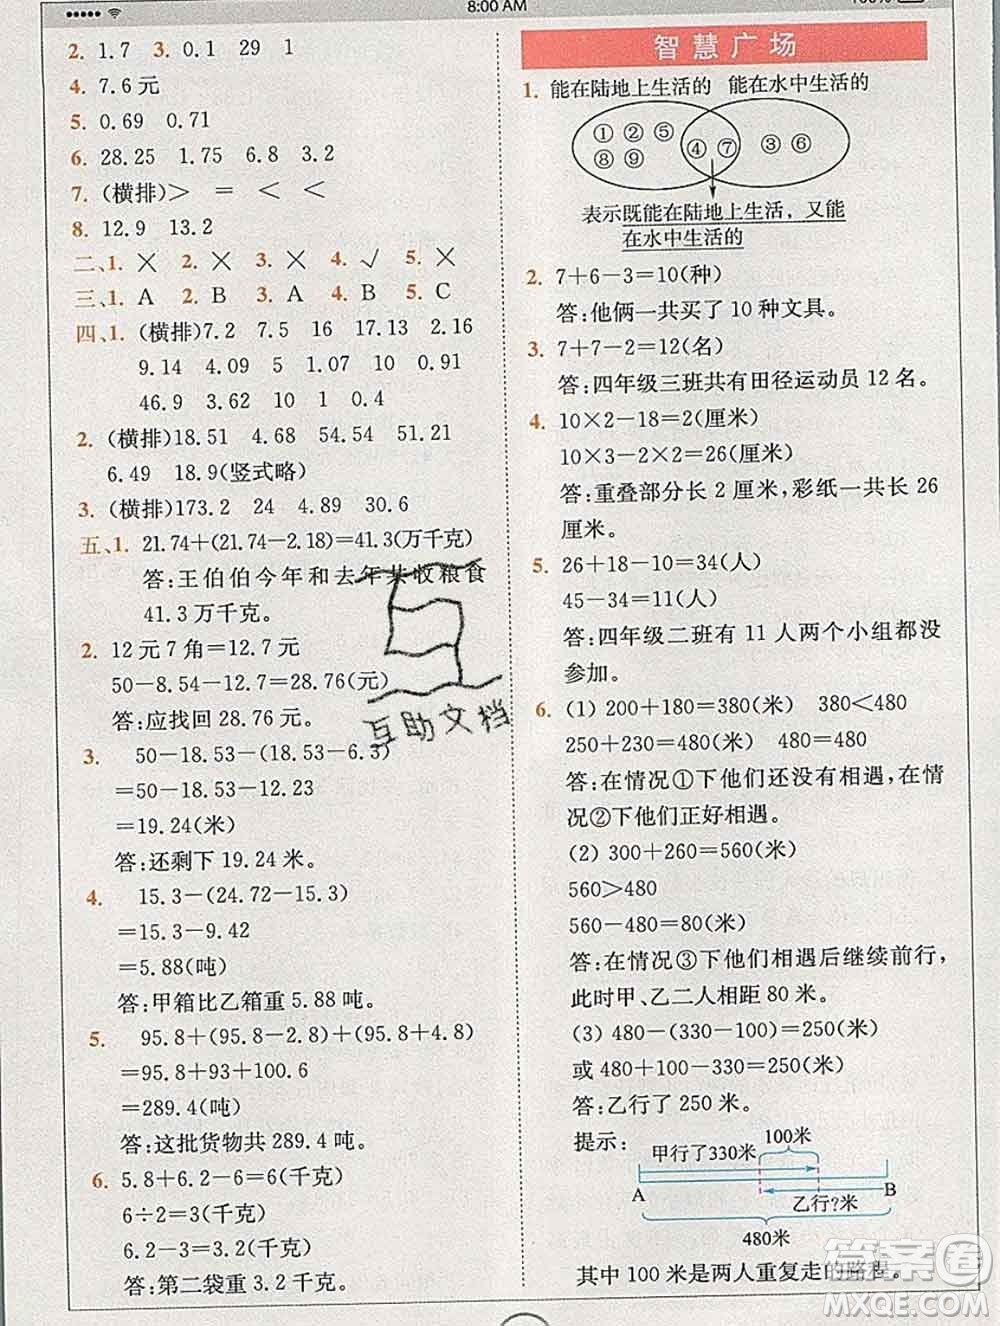 8:00 AM
100%
2. 1.7 3. 0.1 29 1
4. 7.6元
5. 0.69 0.71
6. 28.25 1.75 6.8 3.2
7. (横排)> = < <
8. 12.9 13.2
二、1. × 2. × 3. × 4. √ 5. ×
三、1. A 2. B 3. A 4. B 5. C
四、1. (横排)7.2 7.5 16 17.13 2.16
9.14 4.09 5 1.07 10 0.91
46.9 3.62 10 1 0.4
2. (横排)18.51 4.68 54.54 51.21
6.49 18.9(竖式略)
3. (横排)173.2 24 4.89 30.6
五、1. 21.74+(21.74-2.18)=41.3(万千克)
答:王伯伯今年和去年共收粮食
41.3万千克。
2. 12元7角=12.7元
50-8.54-12.7=28.76(元)
答:应找回28.76元。
3. 50-18.53-(18.53-6.3)
=50-18.53-12.23
=19.24(米)
答:还剩下19.24米。
4. 15.3-(24.72-15.3)
=15.3-9.42
=5.88(吨)
答:甲箱比乙箱重5.88吨。
5. 95.8+(95.8-2.8)+(95.8+4.8)
=95.8+93+100.6
=289.4(吨)
答:这批货物共289.4吨。
6. 5.8+6.2-6=6(千克)
6÷2=3(千克)
6.2-3=3.2(千克)
答:第二袋重3.2千克。
智慧广场
1. 能在陆地上生活的 能在水中生活的
① ② ⑤ ④ ⑦ ③ ⑥
⑧ ⑨
表示既能在陆地上生活,又能
在水中生活的
2. 7+6-3=10(种)
答:他俩一共买了10种文具。
3. 7+7-2=12(名)
答:四年级三班共有田径运动员12名。
4. 10×2-18=2(厘米)
10×3-2×2=26(厘米)
答:重叠部分长2厘米,彩纸一共长26
厘米。
5. 26+18-10=34(人)
45-34=11(人)
答:四年级二班有11人两个小组都没
参加。
6. (1) 200+180=380(米) 380<480
250+230=480(米) 480=480
答:在情况①下他们还没有相遇,在情
况②下他们正好相遇。
(2) 300+260=560(米)
560>480
560-480=80(米)
答:在情况③下他们相遇后继续前行,
此时甲、乙二人相距80米。
(3) 480-(330-100)=250(米)
或480+100-330=250(米)
答:乙行了250米。
提示: 100米
甲行了330米
A B
乙行?米
480米
其中100米是两人重复走的路程。
互助文档
答案圈
MXQE.COM